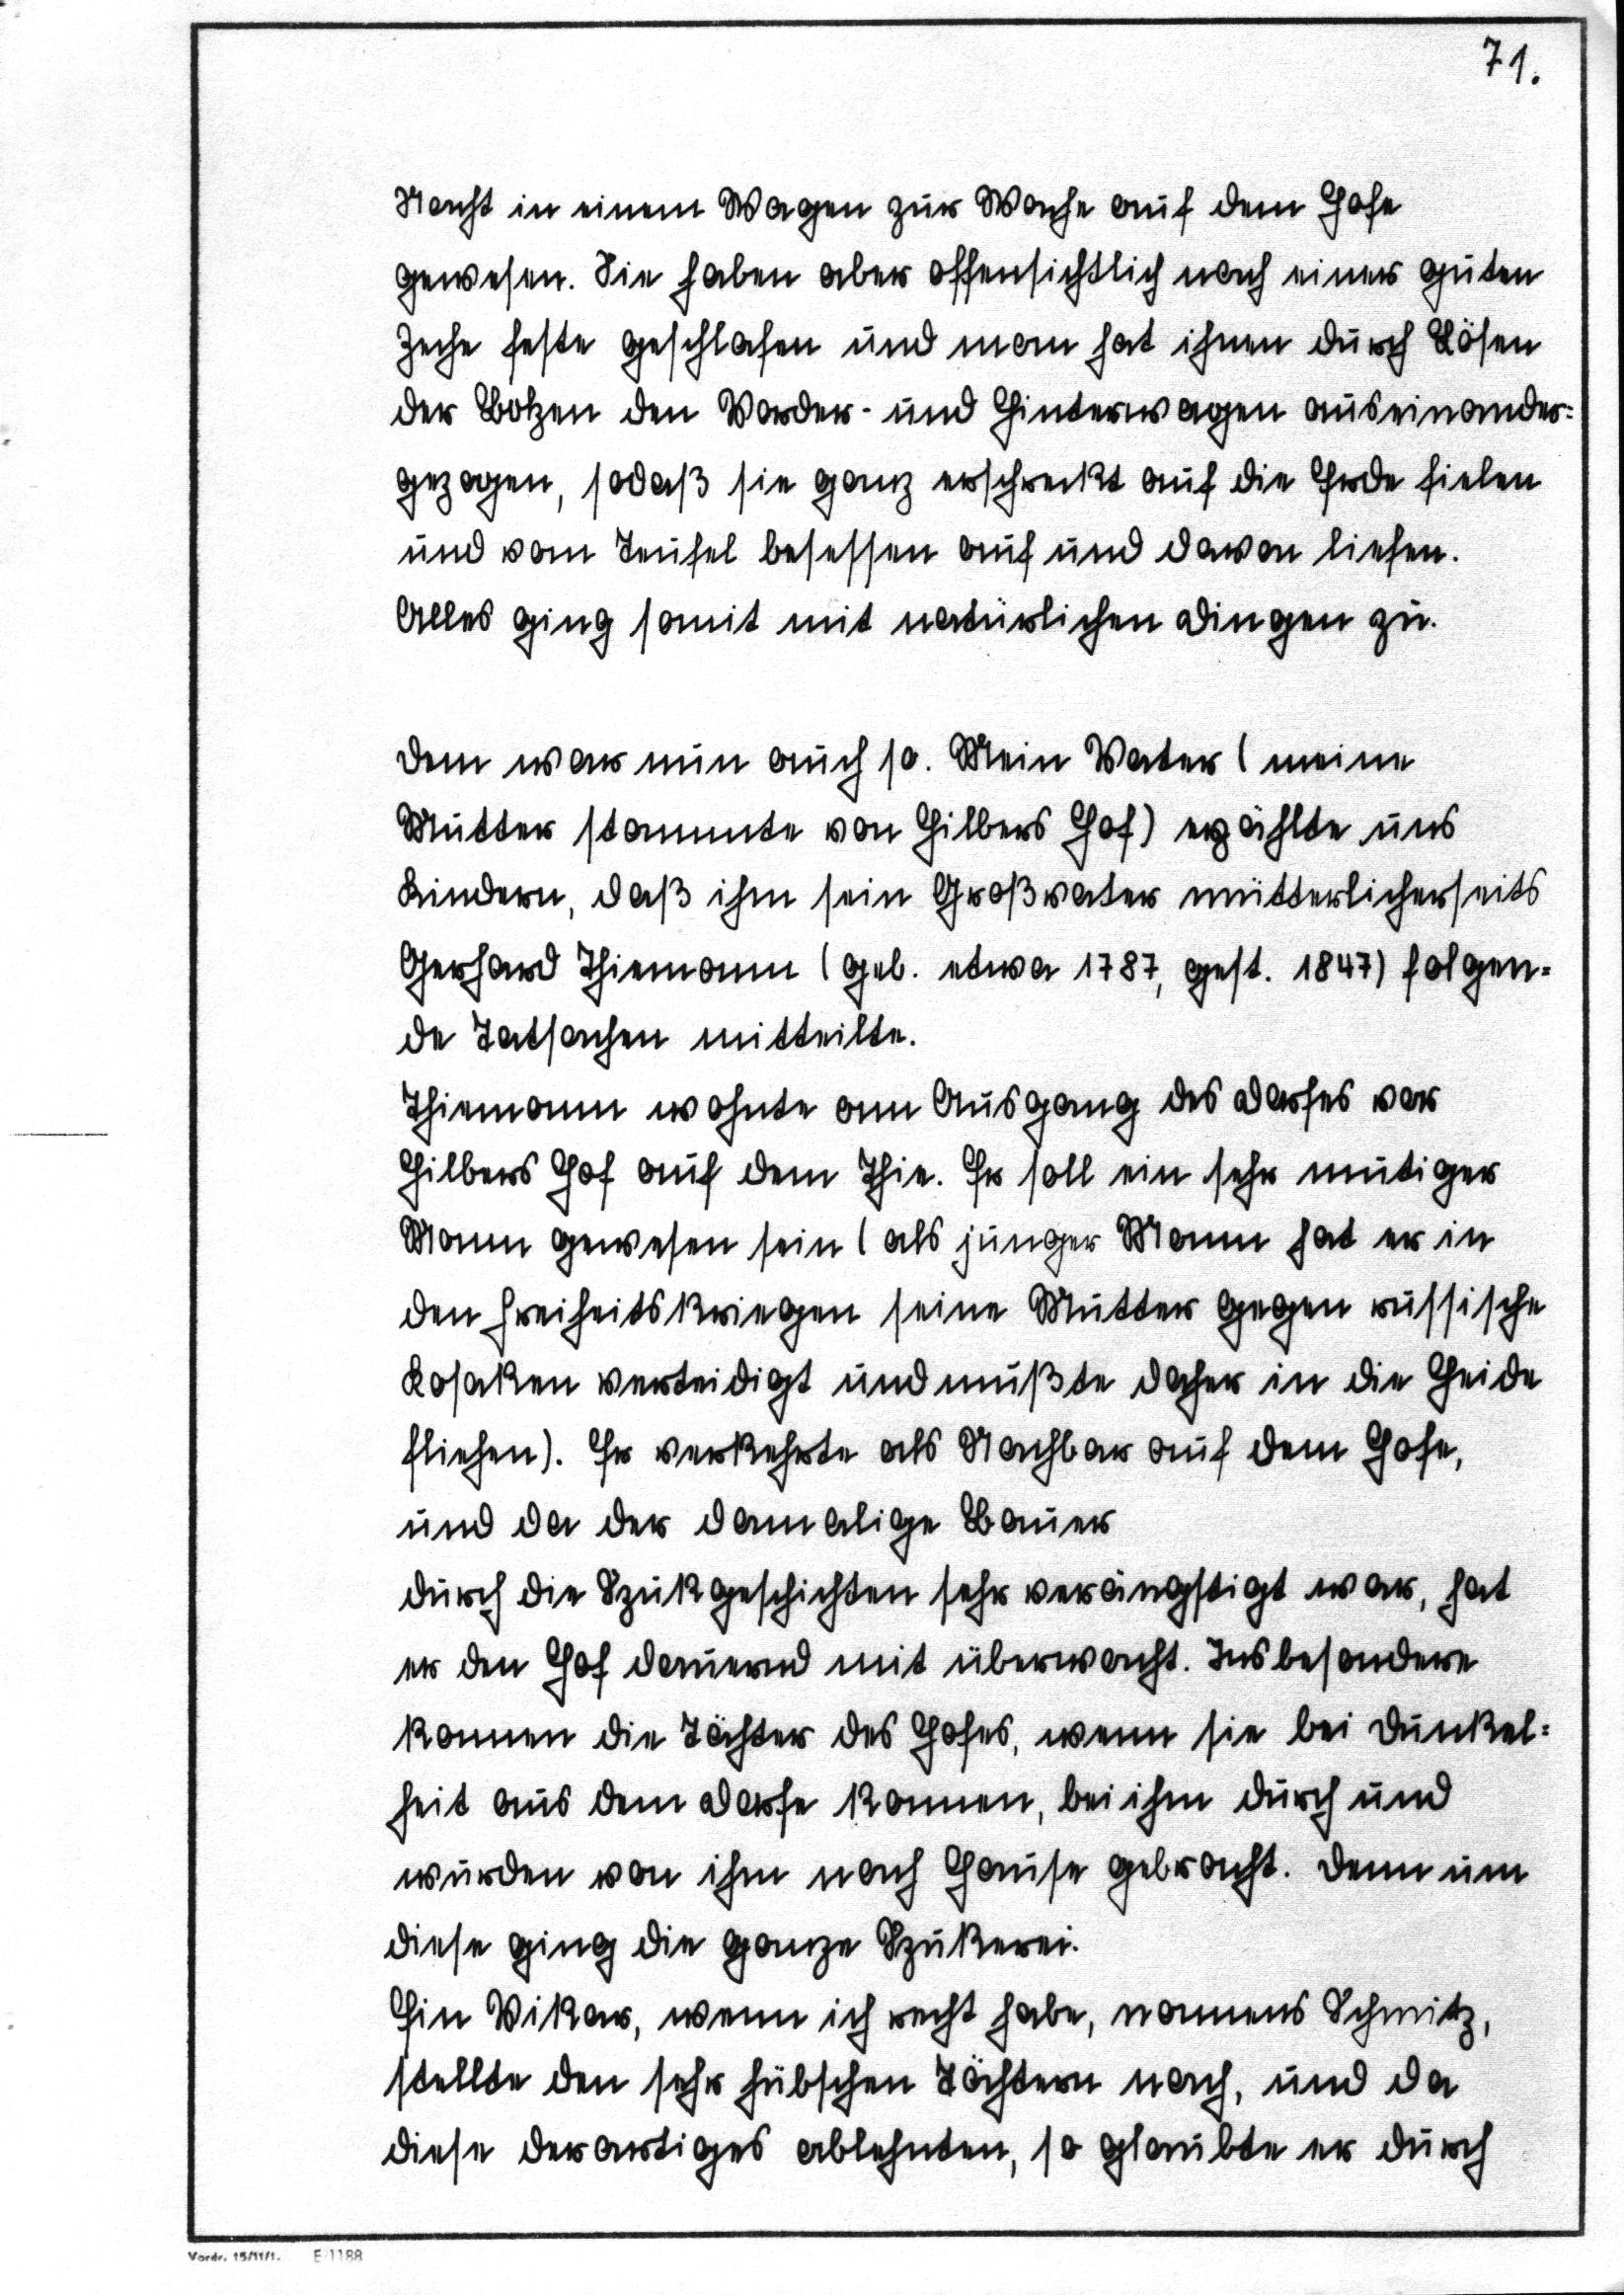 71.
Nacht in einem Wagen zur Wache auf dem Hofe
gewesen. Sie haben aber offensichtlich nach einer guten
Zeche feste geschlafen und man hat ihnen durch Lösen
der Bolzen den Vorder- und Hinterwagen auseinander=
gezogen, sodaß sie ganz erschreckt auf die Erde fielen
und vom Teufel besessen auf und davon liefen.
Alles ging somit mit natürlichen Dingen zu.
Dem war nun auch so. Mein Vater (meine
Mutter stammte von Hilbers Hof) erzählte uns
Kindern, daß ihm sein Großvater mütterlicherseits
Gerhard Thiemann (geb. etwa 1787, gest. 1847) folgen=
de Tatsachen mitteilte.
Thiemann wohnte am Ausgang des Dorfes vor
Hilbers Hof auf dem Thie. Er soll ein sehr mutiger
Mann gewesen sein (als junger Mann hat er in
den Freiheitskriegen seine Mutter gegen russische
Kosaken verteidigt und mußte daher in die Heide
fliehen). Er verkehrte als Nachbar auf dem Hofe,
und da der damalige Bauer
durch die Spukgeschichten sehr verängstigt war, hat
er den Hof dauernd mit überwacht. Insbesondere
kamen die Töchter des Hofes, wenn sie bei Dunkel=
heit aus dem Dorfe kamen, bei ihm durch und
wurden von ihm nach Hause gebracht. Denn um
diese ging die ganze Spukerei.
Ein Vikar, wenn ich recht habe, namens Schmitz,
stellte den sehr hübschen Töchtern nach, und da
diese derartiges ablehnten, so glaubte er durch
Vordr. 15/11/1. E/1188